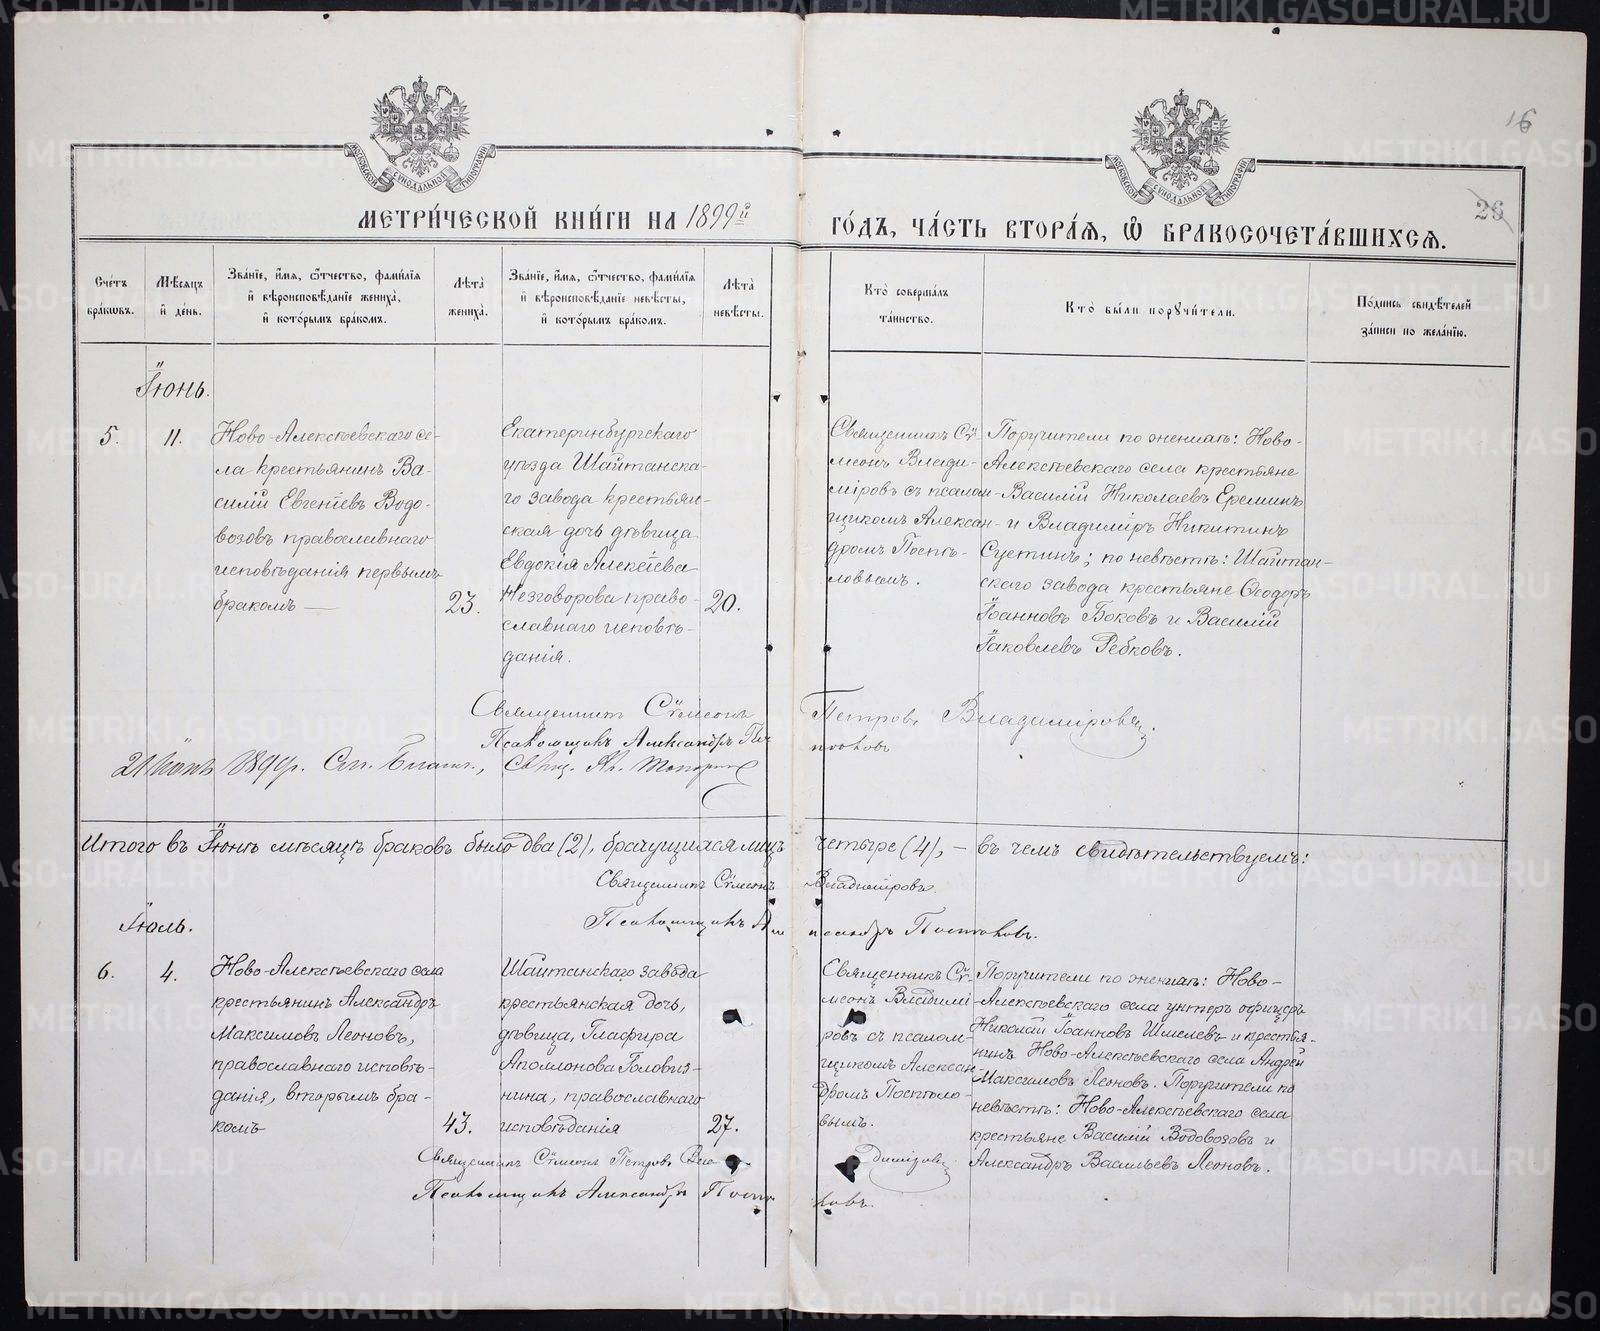 16
26
МОСКОВСКОЙ СУНОДАЛЬНОЙ ТИПОГРАФІИ
МОСКОВСКОЙ СУНОДАЛЬНОЙ ТИПОГРАФІИ
МЕТРИ́ЧЕСКОЙ КНИ́ГИ НА 1899й
ГО́ДЪ, ЧА́СТЬ ВТОРА́Ѧ, Ѽ БРАКОСОЧЕТА́ВШИХСѦ.
Счетъ браковъ.
Мѣсяцъ и день.
Званіе, имя, отчество, фамилія и вѣроисповѣданіе жениха, и которымъ бракомъ.
Лѣта жениха.
Званіе, имя, отчество, фамилія и вѣроисповѣданіе невѣсты, и которымъ бракомъ.
Лѣта невѣсты.
Кто совершалъ таинство.
Кто были поручители.
Подпись свидѣтелей записи по желанію.
Іюнь.
5.
11.
Ново-Алексѣевскаго се-
ла крестьянинъ Ва-
силій Евгеніевъ Водо-
возовъ православнаго
исповѣданія первымъ
бракомъ —
23.
Екатеринбургскаго
уѣзда Шайтанска-
го завода крестьян-
ская дочь дѣвица
Евдокія Алексіева
Незговорова право-
славнаго исповѣ-
данія.
20.
Священникъ Сѵ-
меонъ Влади-
міровъ съ псалом-
щикомъ Алексан-
дромъ Поспѣ-
ловымъ.
Поручители по женихѣ: Ново-
Алексѣевскаго села крестьяне
Василій Николаевъ Ереминъ
и Владиміръ Никитинъ
Суетинъ; по невѣстѣ: Шайтан-
скаго завода крестьяне Ѳеодоръ
Іоанновъ Боковъ и Василій
Іаковлевъ Рѣбковъ.
Священникъ Сѵмеонъ Петровъ Владиміровъ.
Псаломщикъ Александръ Поспѣловъ
21 Іюнь 1899г. Св. Благоч., Свящ.
Итого въ Іюнѣ мѣсяцѣ браковъ было два (2), брачущихся лицъ четыре (4), — въ чемъ свидѣтельствуемъ:
Священникъ Сѵмеонъ Владиміровъ.
Псаломщикъ Александръ Поспѣловъ.
Іюль.
6.
4.
Ново-Алексѣевскаго села
крестьянинъ Александръ
Максимовъ Леоновъ,
православнаго исповѣ-
данія, вторымъ бра-
комъ
43.
Шайтанскаго завода
крестьянская дочь,
дѣвица, Глафира
Аполлонова Головиз-
нина, православнаго
исповѣданія
27.
Священникъ Сѵ-
меонъ Владимі-
ровъ съ псалом-
щикомъ Алексан-
дромъ Поспѣло-
вымъ.
Поручители по женихѣ: Ново-
Алексѣевскаго села унтеръ офицеръ
Николай Іоанновъ Шмелевъ и крестья-
нинъ Ново-Алексѣевскаго села Андрей
Максимовъ Леоновъ. Поручители по
невѣстѣ: Ново-Алексѣевскаго села
крестьяне Василій Водовозовъ и
Александръ Васильевъ Леоновъ.
Священникъ Сѵмеонъ Петровъ Владиміровъ
Псаломщикъ Александръ Поспѣловъ.
METRIKI.GASO-URAL.RU